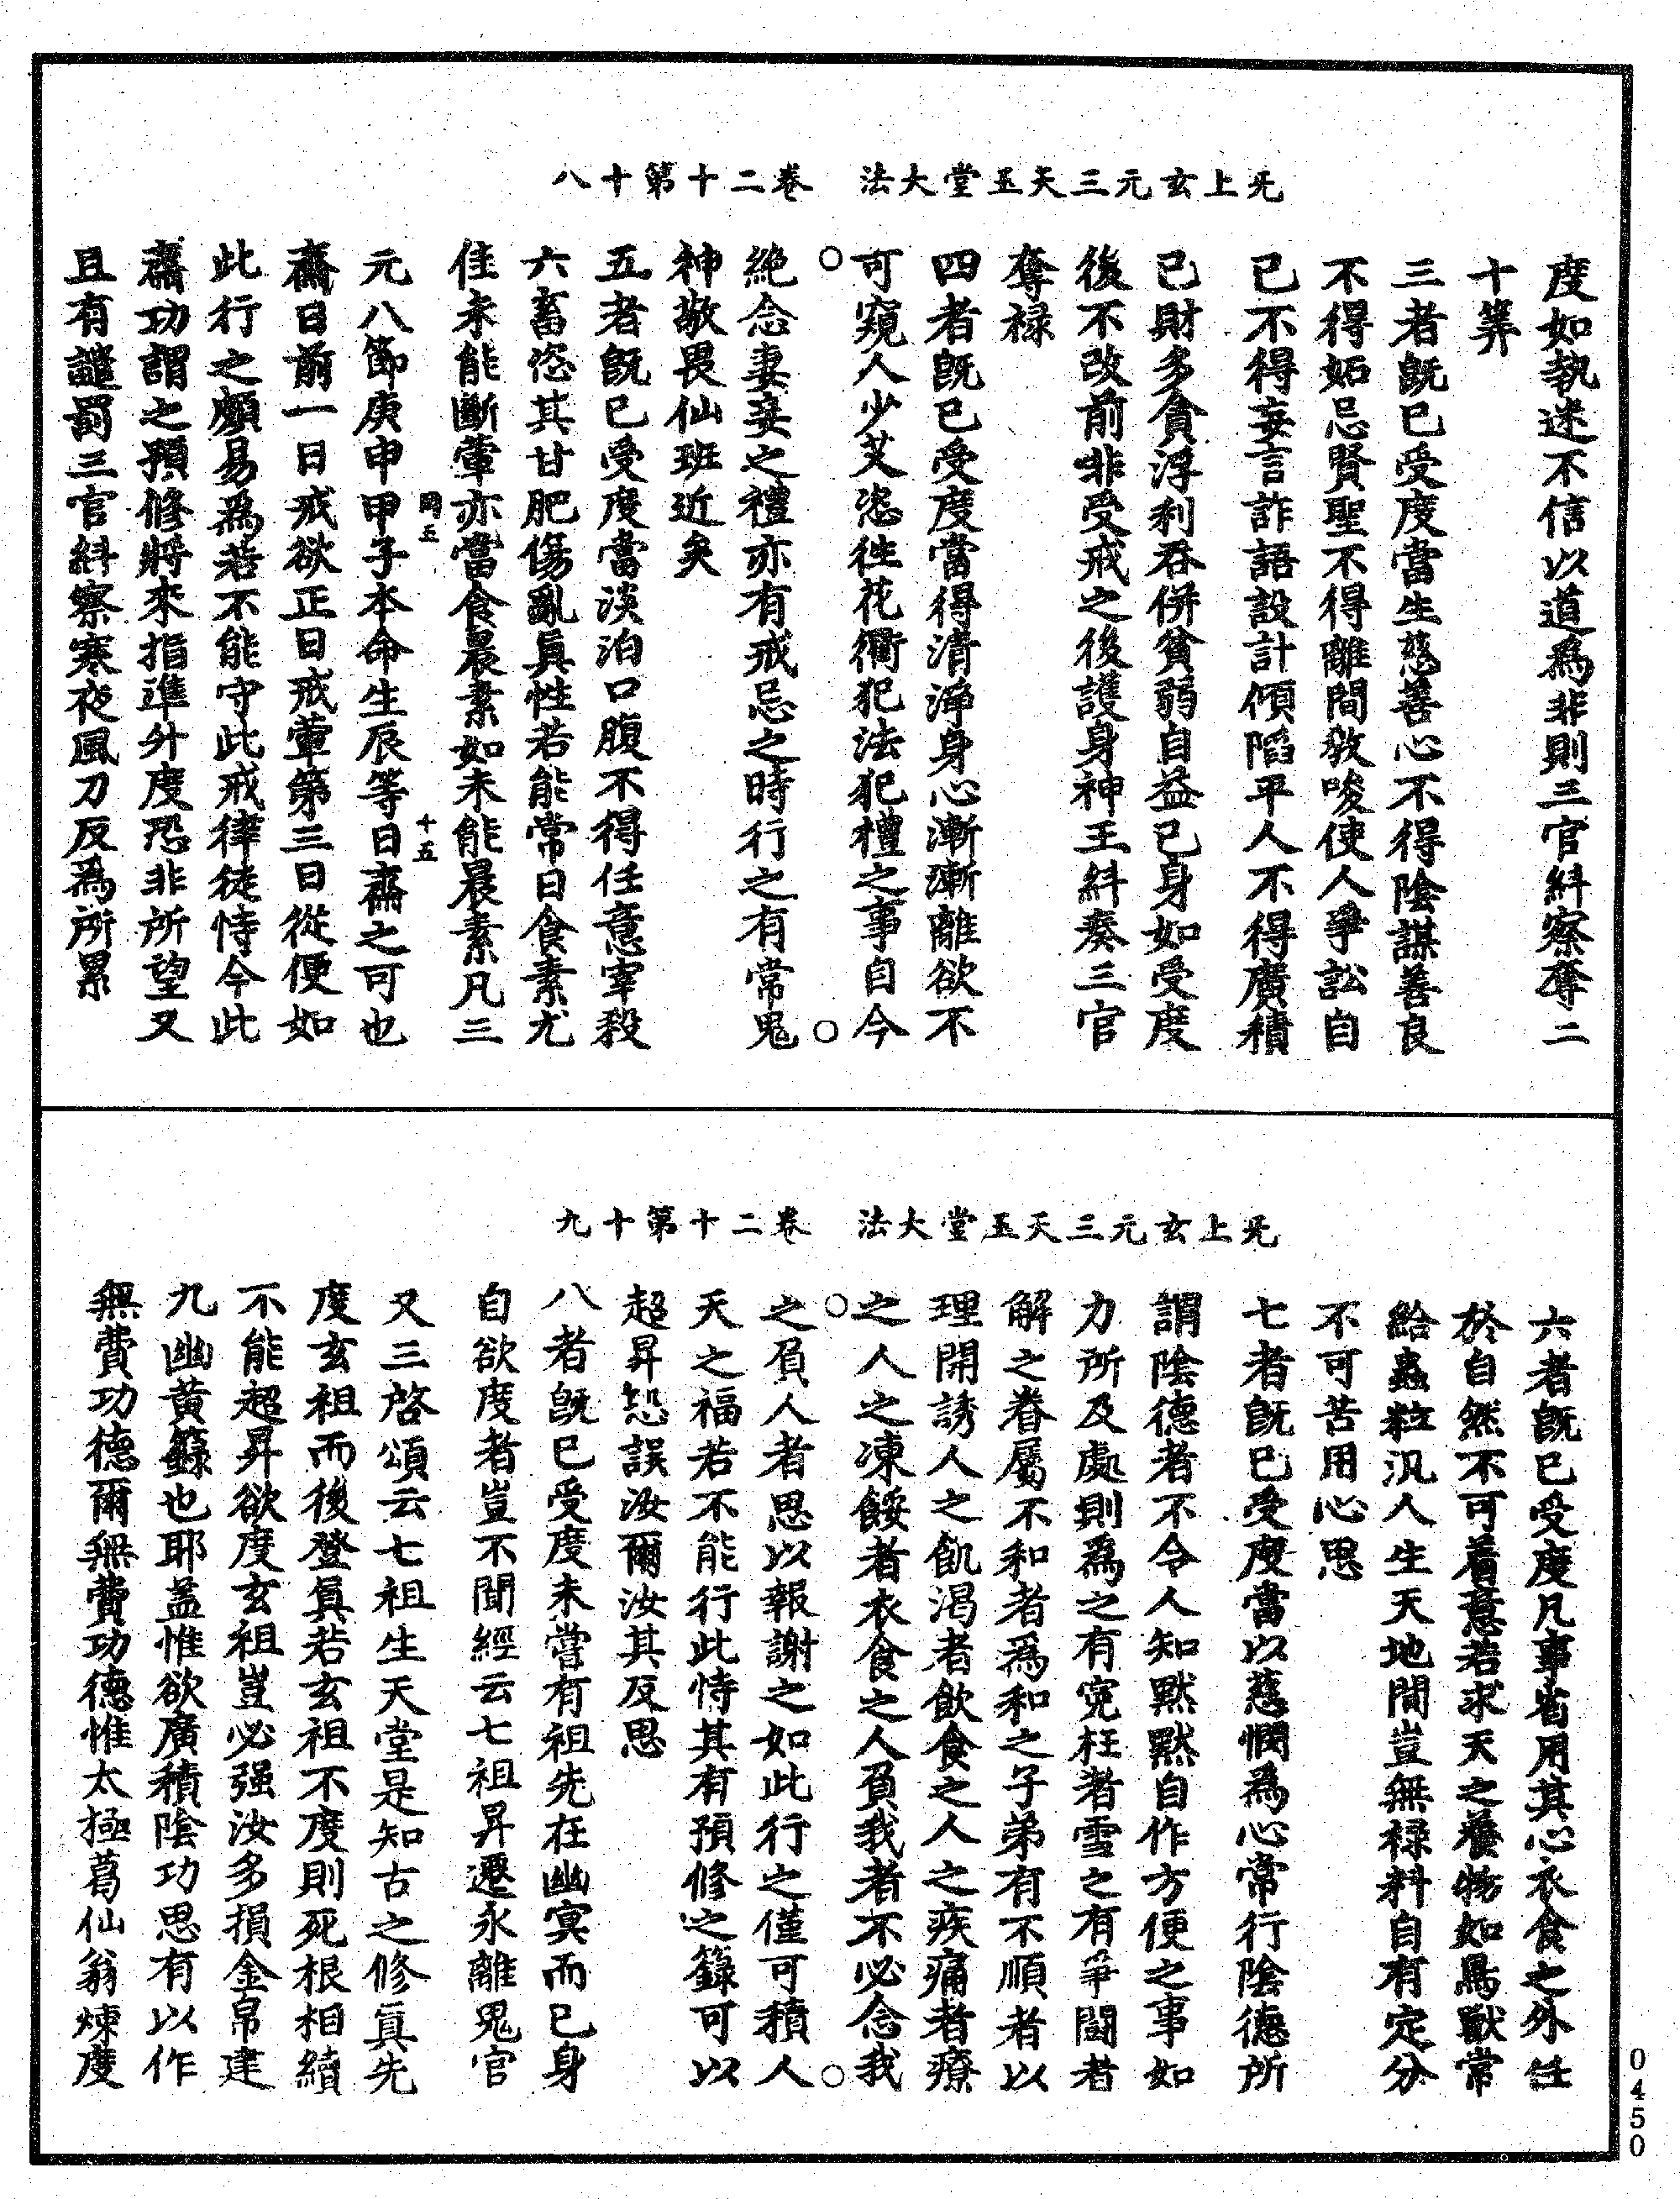 无上玄元三天玉堂大法　卷二十第十八
度如執迷不信以道為非則三官糾察奪二
十筭
三者旣已受度當生慈善心不得陰謀善良
不得妬忌賢聖不得離間教唆使人爭訟自
已不得妄言詐語設計傾陷平人不得廣積
己財多貪浮利吞併貧弱自益已身如受度
後不改前非受戒之後護身神王糾奏三官
奪祿
四者旣已受度當得清淨身心漸漸離欲不
可窺人少艾恣徃花衢犯法犯禮之事自今
絶念妻妾之禮亦有戒忌之時行之有常鬼
神敬畏仙班近矣
五者旣已受度當淡泊口腹不得任意宰殺
六畜恣其甘肥傷亂真性若能常日食素尤
佳未能斷葷亦當食晨素如未能晨素凡三
同五　十五
元八節庚申甲子本命生辰等日齋之可也
齋日前一日戒欲正日戒葷第三日從便如
此行之頗易爲若不能守此戒律徒恃今此
齋功謂之預修將來指準升度恐非所望又
且有譴罰三官糾察寒夜風刀反爲所累
无上玄元三天玉堂大法　卷二十第十九
六者旣已受度凡事省用其心衣食之外任
於自然不可着意若求天之養物如鳥獸常
給蟲粒汎人生天地間豈無祿料自有定分
不可苦用心思
七者旣已受度當以慈憫爲心常行陰德所
謂陰德者不令人知默默自作方便之事如
力所及處則爲之有寃枉者雪之有爭鬪者
解之眷屬不和者爲和之子弟有不順者以
理開誘人之飢渴者飲食之人之疾痛者療
之人之凍餒者衣食之人負我者不必念我
之負人者思以報謝之如此行之僅可積人
天之福若不能行此恃其有預修之籙可以
超昇恐誤汝爾汝其反思
八者旣已受度未嘗有祖先在幽冥而已身
自欲度者豈不聞經云七祖昇遷永離鬼官
又三啓頌云七祖生天堂是知古之修真先
度玄祖而後登真若玄祖不度則死根相續
不能超昇欲度玄祖豈必强汝多損金帛建
九幽黄籙也耶盖惟欲廣積陰功思有以作
無費功德爾無費功德惟太極葛仙翁煉度
0450